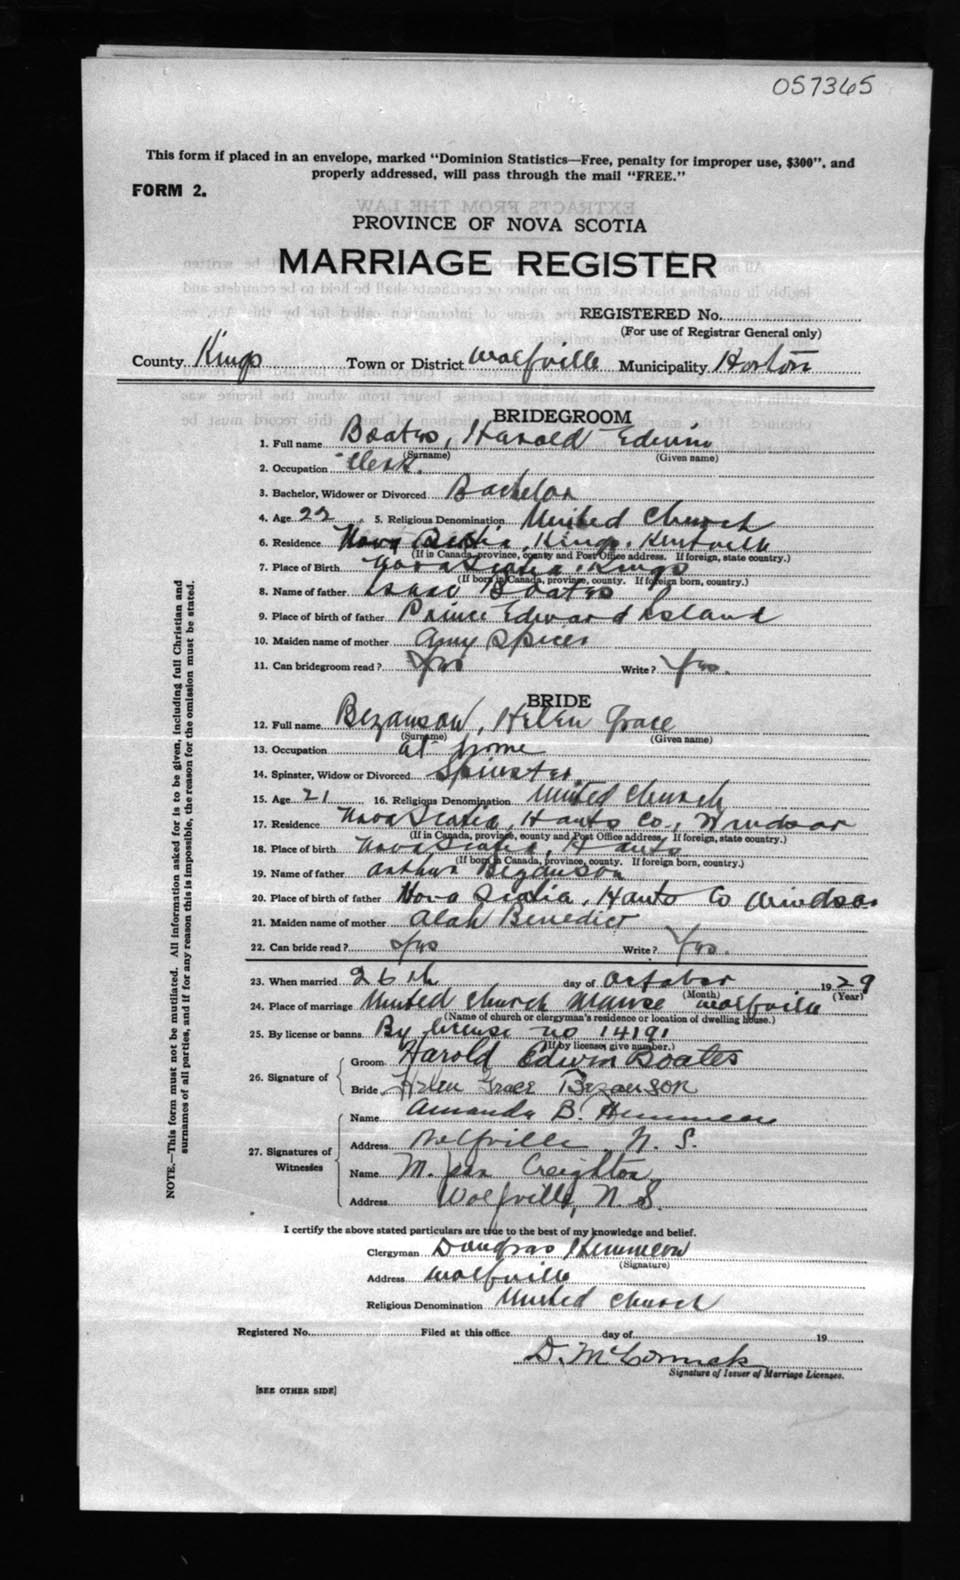 057365
This form if placed in an envelope, marked "Dominion Statistics—Free, penalty for improper use, $300", and
properly addressed, will pass through the mail "FREE."
FORM 2.
PROVINCE OF NOVA SCOTIA
MARRIAGE REGISTER
REGISTERED No.
(For use of Registrar General only)
County Kings Town or District Wolfville Municipality Horton
BRIDEGROOM
1. Full name Boates, Harold Edwin
(Surname) (Given name)
2. Occupation Clerk.
3. Bachelor, Widower or Divorced Bachelor
4. Age 22 5. Religious Denomination United Church
6. Residence Nova Scotia, Kings, Kentville
(If in Canada, province, county and Post Office address. If foreign, state country.)
7. Place of Birth Nova Scotia, Kings
(If born in Canada, province, county. If foreign born, country.)
8. Name of father Isaac Boates
9. Place of birth of father Prince Edward Island
10. Maiden name of mother Amy Spicer
11. Can bridegroom read? Yes Write? Yes.
BRIDE
12. Full name Bezanson, Helen Grace
(Surname) (Given name)
13. Occupation at home
14. Spinster, Widow or Divorced Spinster
15. Age 21 16. Religious Denomination United Church
17. Residence Nova Scotia, Hants Co., Windsor
(If in Canada, province, county and Post Office address. If foreign, state country.)
18. Place of birth Nova Scotia, Hants
(If born in Canada, province, county. If foreign born, country.)
19. Name of father Arthur Bezanson
20. Place of birth of father Nova Scotia, Hants Co Windsor
21. Maiden name of mother Alah Benedict
22. Can bride read? Yes Write? Yes.
23. When married 26th day of October 1929
(Month) (Year)
24. Place of marriage United Church Manse Wolfville
(Name of church or clergyman's residence or location of dwelling house.)
25. By license or banns. By license no 14191
(If by license, give number.)
26. Signature of Groom Harold Edwin Boates
Bride Helen Grace Bezanson
27. Signatures of Witnesses
Name Amanda B. Hemmeon
Address Wolfville N. S.
Name M. Jean Creighton
Address Wolfville, N. S.
I certify the above stated particulars are true to the best of my knowledge and belief.
Clergyman Douglas Hemmeon
(Signature)
Address Wolfville
Religious Denomination United Church
Registered No. Filed at this office day of 19
D. McCormick
Signature of Issuer of Marriage Licenses.
[SEE OTHER SIDE]
NOTE.—This form must not be mutilated. All information asked for is to be given, including full Christian and
surnames of all parties, and if for any reason this is impossible, the reason for the omission must be stated.